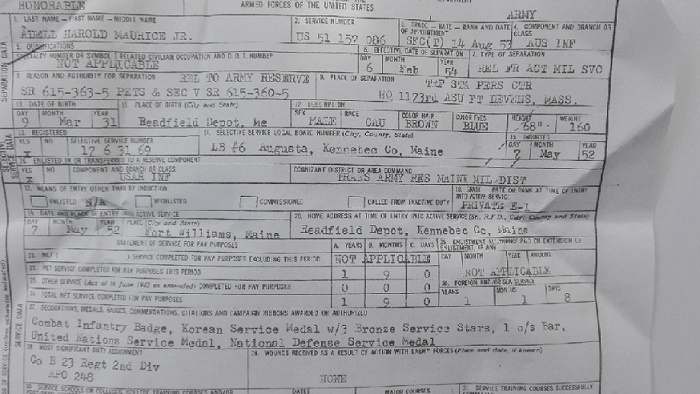 HONORABLE
ARMED FORCES OF THE UNITED STATES
ARMY
1. LAST NAME - FIRST NAME - MIDDLE NAME 2. SERVICE NUMBER 3. GRADE - RATE - RANK AND DATE OF APPOINTMENT 4. COMPONENT AND BRANCH OR CLASS
HAROLD MAURICE JR. US 51 157 006 14 Aug 53 AUS INF
QUALIFICATIONS
SPECIALTY NUMBER OR SYMBOL RELATED CIVILIAN OCCUPATION AND D.O.T. NUMBER EFFECTIVE DATE OF SEPARATION TYPE OF SEPARATION
NOT APPLICABLE DAY MONTH YEAR
6 Feb 54 REL FR ACT MIL SVC
REASON AND AUTHORITY FOR SEPARATION REL TO ARMY RESERVE PLACE OF SEPARATION PERS CTR
SR 615-363-5 PETS & SEC V SR 615-360-5 HQ 1173rd ASU FT DEVENS, MASS.
DATE OF BIRTH PLACE OF BIRTH (City and State) DESCRIPTION
DAY MONTH YEAR SEX RACE COLOR HAIR COLOR EYES HEIGHT WEIGHT
9 Mar 31 Readfield Depot, Me MALE CAU BROWN BLUE 68" 160
REGISTERED SELECTIVE SERVICE NUMBER SELECTIVE SERVICE LOCAL BOARD NUMBER (City, County, State) INDUCTED
YES NO DAY MONTH YEAR
X 17 6 31 69 LB #6 Augusta, Kennebec Co, Maine 7 May 52
ENLISTED IN OR TRANSFERRED TO A RESERVE COMPONENT
YES NO COMPONENT AND BRANCH OR CLASS COGNIZANT DISTRICT OR AREA COMMAND
X USAR INF TRANS ARMY RES MAINE MIL DIST
MEANS OF ENTRY OTHER THAN BY INDUCTION GRADE RATE OR RANK AT TIME OF ENTRY INTO ACTIVE SERVICE
ENLISTED N/A REENLISTED COMMISSIONED CALLED FROM INACTIVE DUTY PRIVATE E-1
DATE AND PLACE OF ENTRY INTO ACTIVE SERVICE 20. HOME ADDRESS AT TIME OF ENTRY INTO ACTIVE SERVICE (St., R.F.D., City, County and State)
DAY MONTH YEAR PLACE (City and State)
7 May 52 Fort Williams, Maine Readfield Depot, Kennebec Co, Maine
STATEMENT OF SERVICE FOR PAY PURPOSES A. YEARS B. MONTHS C. DAYS
SERVICE COMPLETED FOR PAY PURPOSES EXCLUDING THIS PERIOD NOT APPLICABLE DAY MONTH YEAR AMOUNT
NET SERVICE COMPLETED FOR PAY PURPOSES THIS PERIOD 1 9 0 NOT APPLICABLE
OTHER SERVICE COMPLETED FOR PAY PURPOSES 0 0 0 FOREIGN AND/OR SEA SERVICE
TOTAL NET SERVICE COMPLETED FOR PAY PURPOSES 1 9 0 YEARS MONTHS DAYS
1 1 8
27. DECORATIONS, MEDALS, BADGES, COMMENDATIONS, CITATIONS AND CAMPAIGN RIBBONS AWARDED OR AUTHORIZED
Combat Infantry Badge, Korean Service Medal w/3 Bronze Service Stars, 1 o/s Bar,
United Nations Service Medal, National Defense Service Medal
28. MOST SIGNIFICANT DUTY ASSIGNMENT 29. WOUNDS RECEIVED AS A RESULT OF ACTION WITH ENEMY FORCES (Place and date, if known)
Co B 23 Regt 2nd Div
APO 248 NONE
SERVICE SCHOOLS OR COLLEGES DATES MAJOR COURSES SERVICE TRAINING COURSES SUCCESSFULLY
SERVICE DATA